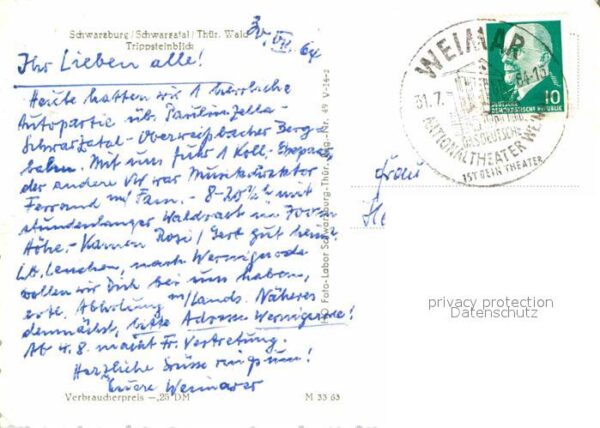 Schwarzburg/Schwarzatal/Thür. Wald
Trippsteinblick
30. VII. 64
Ihr Lieben alle!
Heute hatten wir 1 herrliche
Autopartie üb. Paulinzella-
Schwarzatal-Oberweißbacher Berg-
bahn. Mit uns fuhr 1 Koll.-Ehepaar,
der andere war Musikdirektor
Ferrand m/Fam. - 8-20 h mit
stundenlanger Waldrast in
Höhe.- Kamen Rosi/Gert gut heim?
Lb. Lenchen, nach Wernigerode
wollen wir Dich bei uns haben,
evtl. Abholung m/Lands. Näheres
demnächst, bitte Adresse Wernigerode!
Ab 4.8. macht Fr. Vertretung.
Herzliche Grüsse ringsum!
Eure Weimarer
Verbraucherpreis -,25 DM
M 33 63
Foto-Labor Schwarzburg-Thür. Reg.-Nr. 49 V-16-2
WEIMAR
31.7.
64-15
GASDEUTSCHE
NATIONALTHEATER WEIMAR
IST DEIN THEATER
DEUTSCHE
DEMOKRATISCHE REPUBLIK
10
Frau
He
privacy protection
Datenschutz